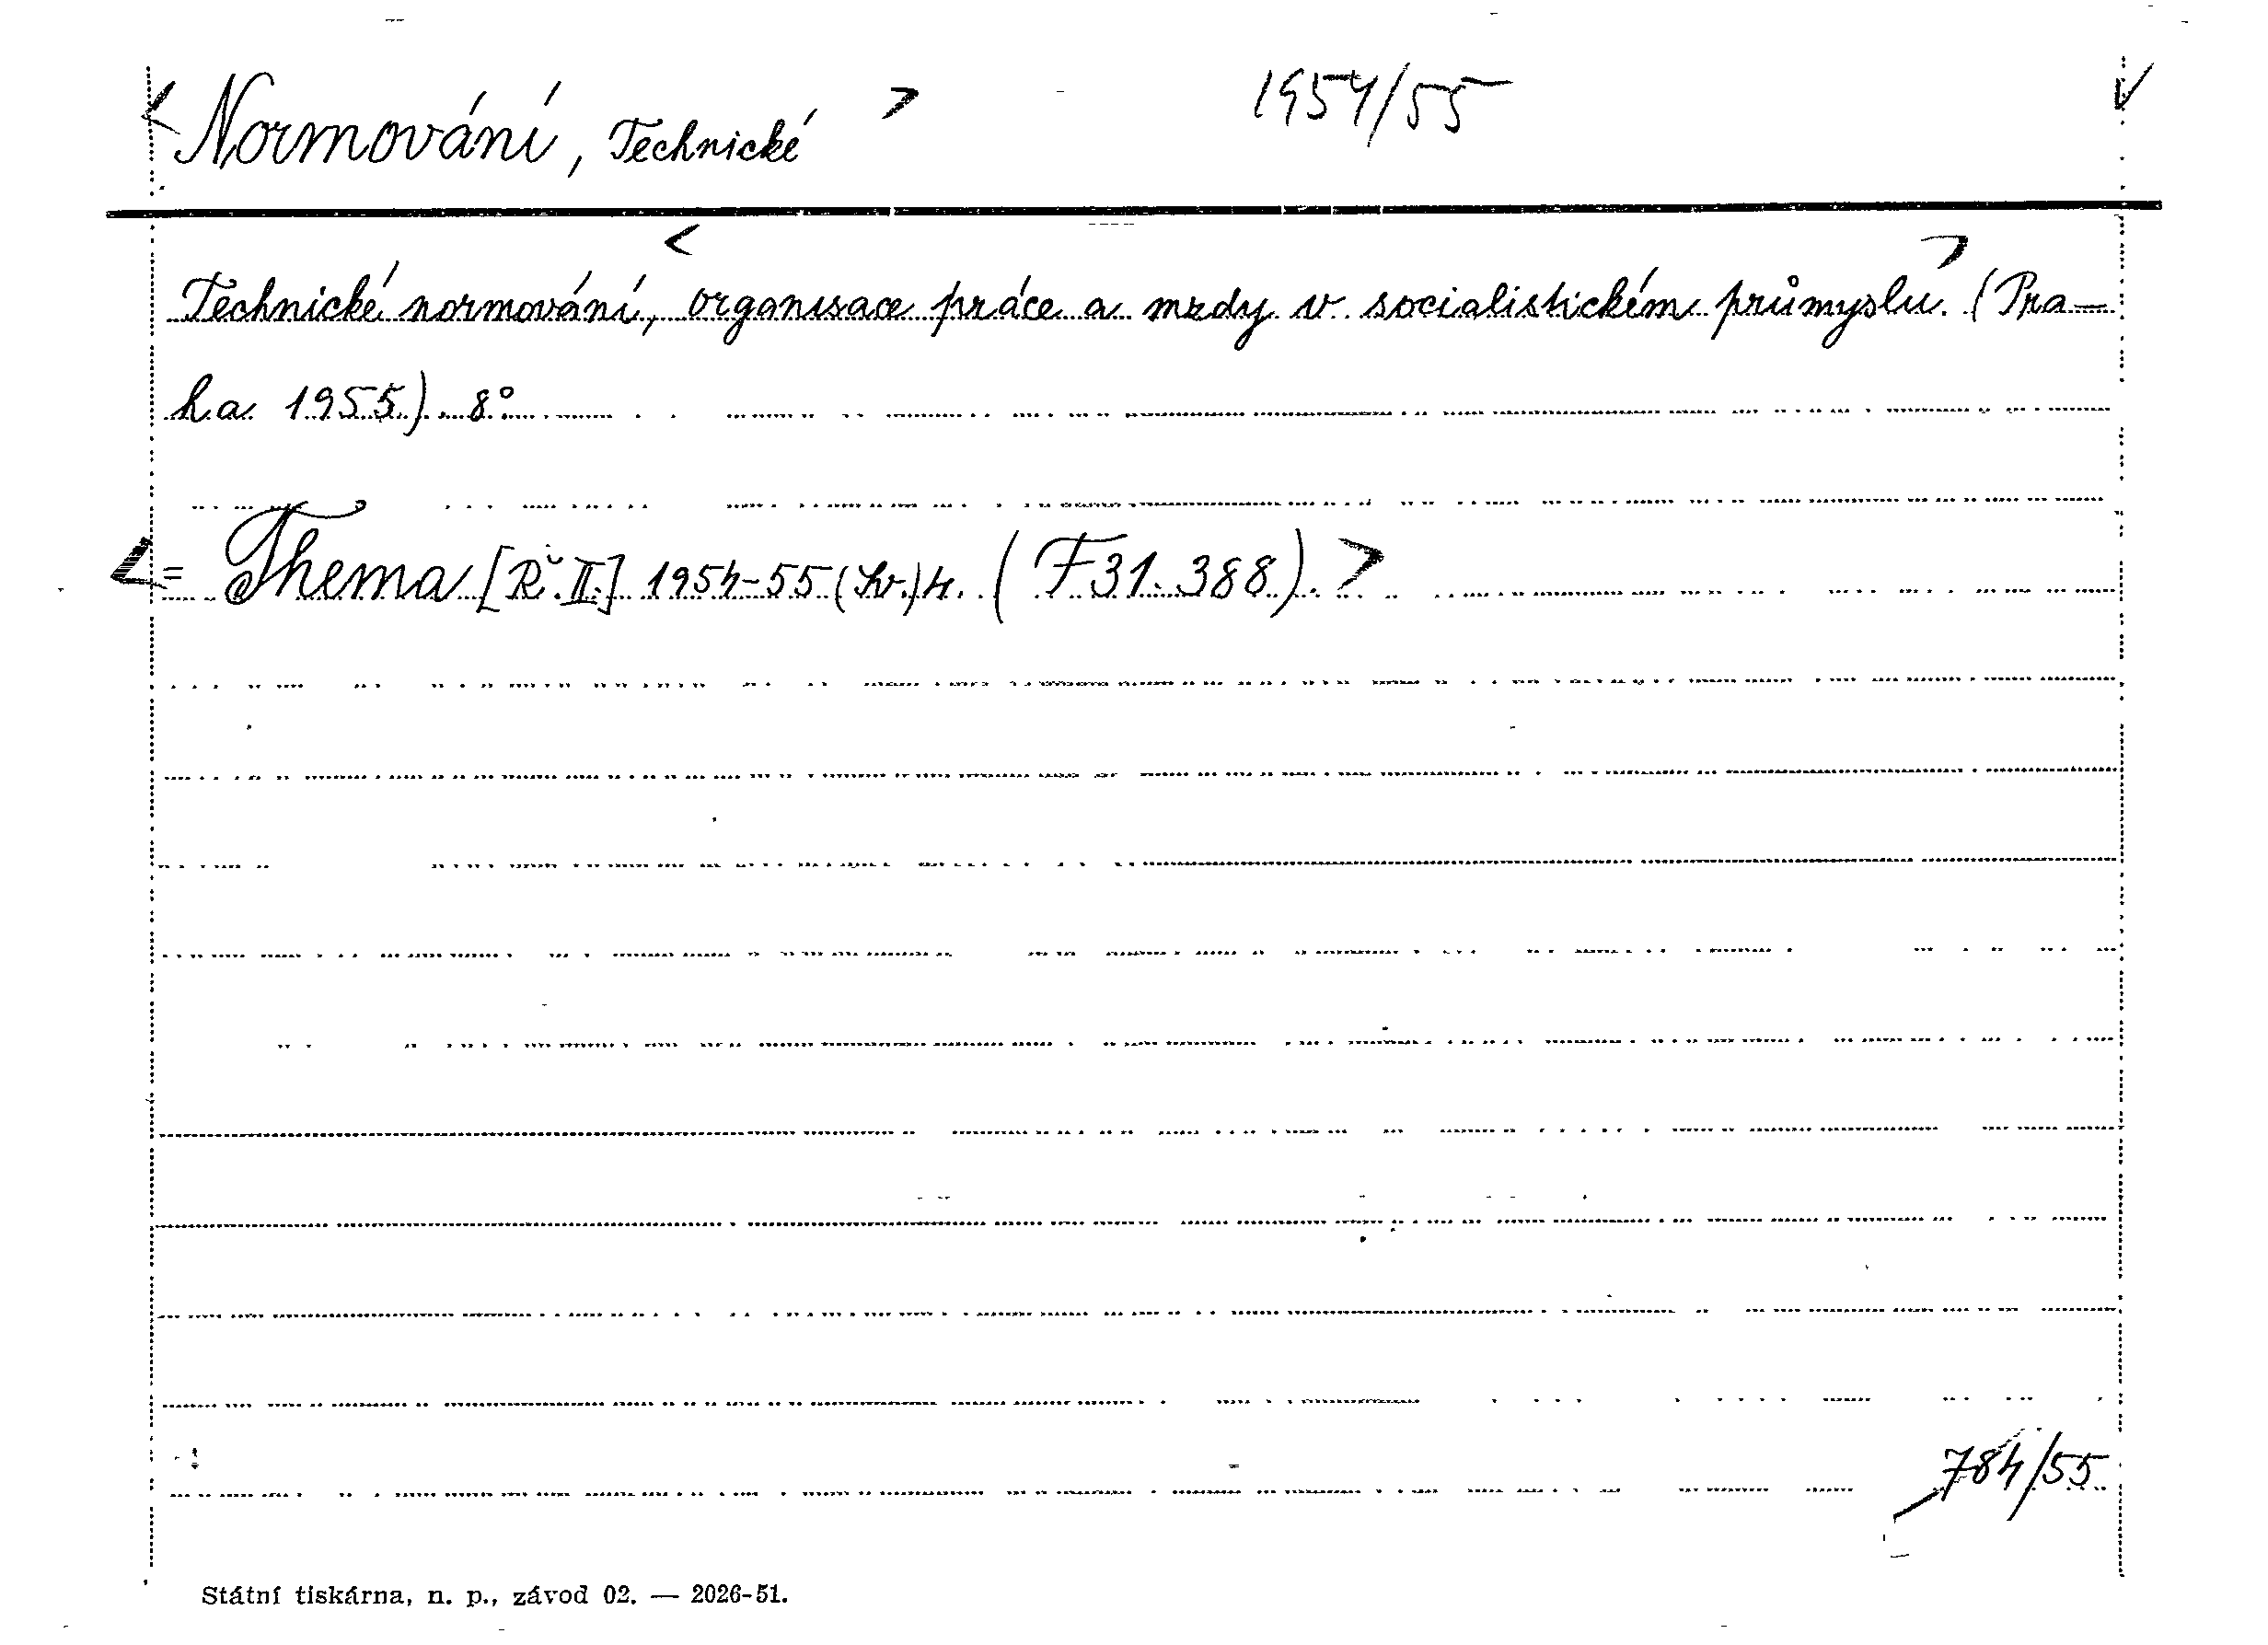 < Normování, Technické > 1954/55 √
Technické normování, < organisace práce a mzdy v socialistickém průmyslu. > (Pra–
ha 1955). 8°
< = Thema [Ř. II.] 1954-55 (Sv.) 4. (F 31.388). >
784/55
Státní tiskárna, n. p., závod 02. — 2026-51.